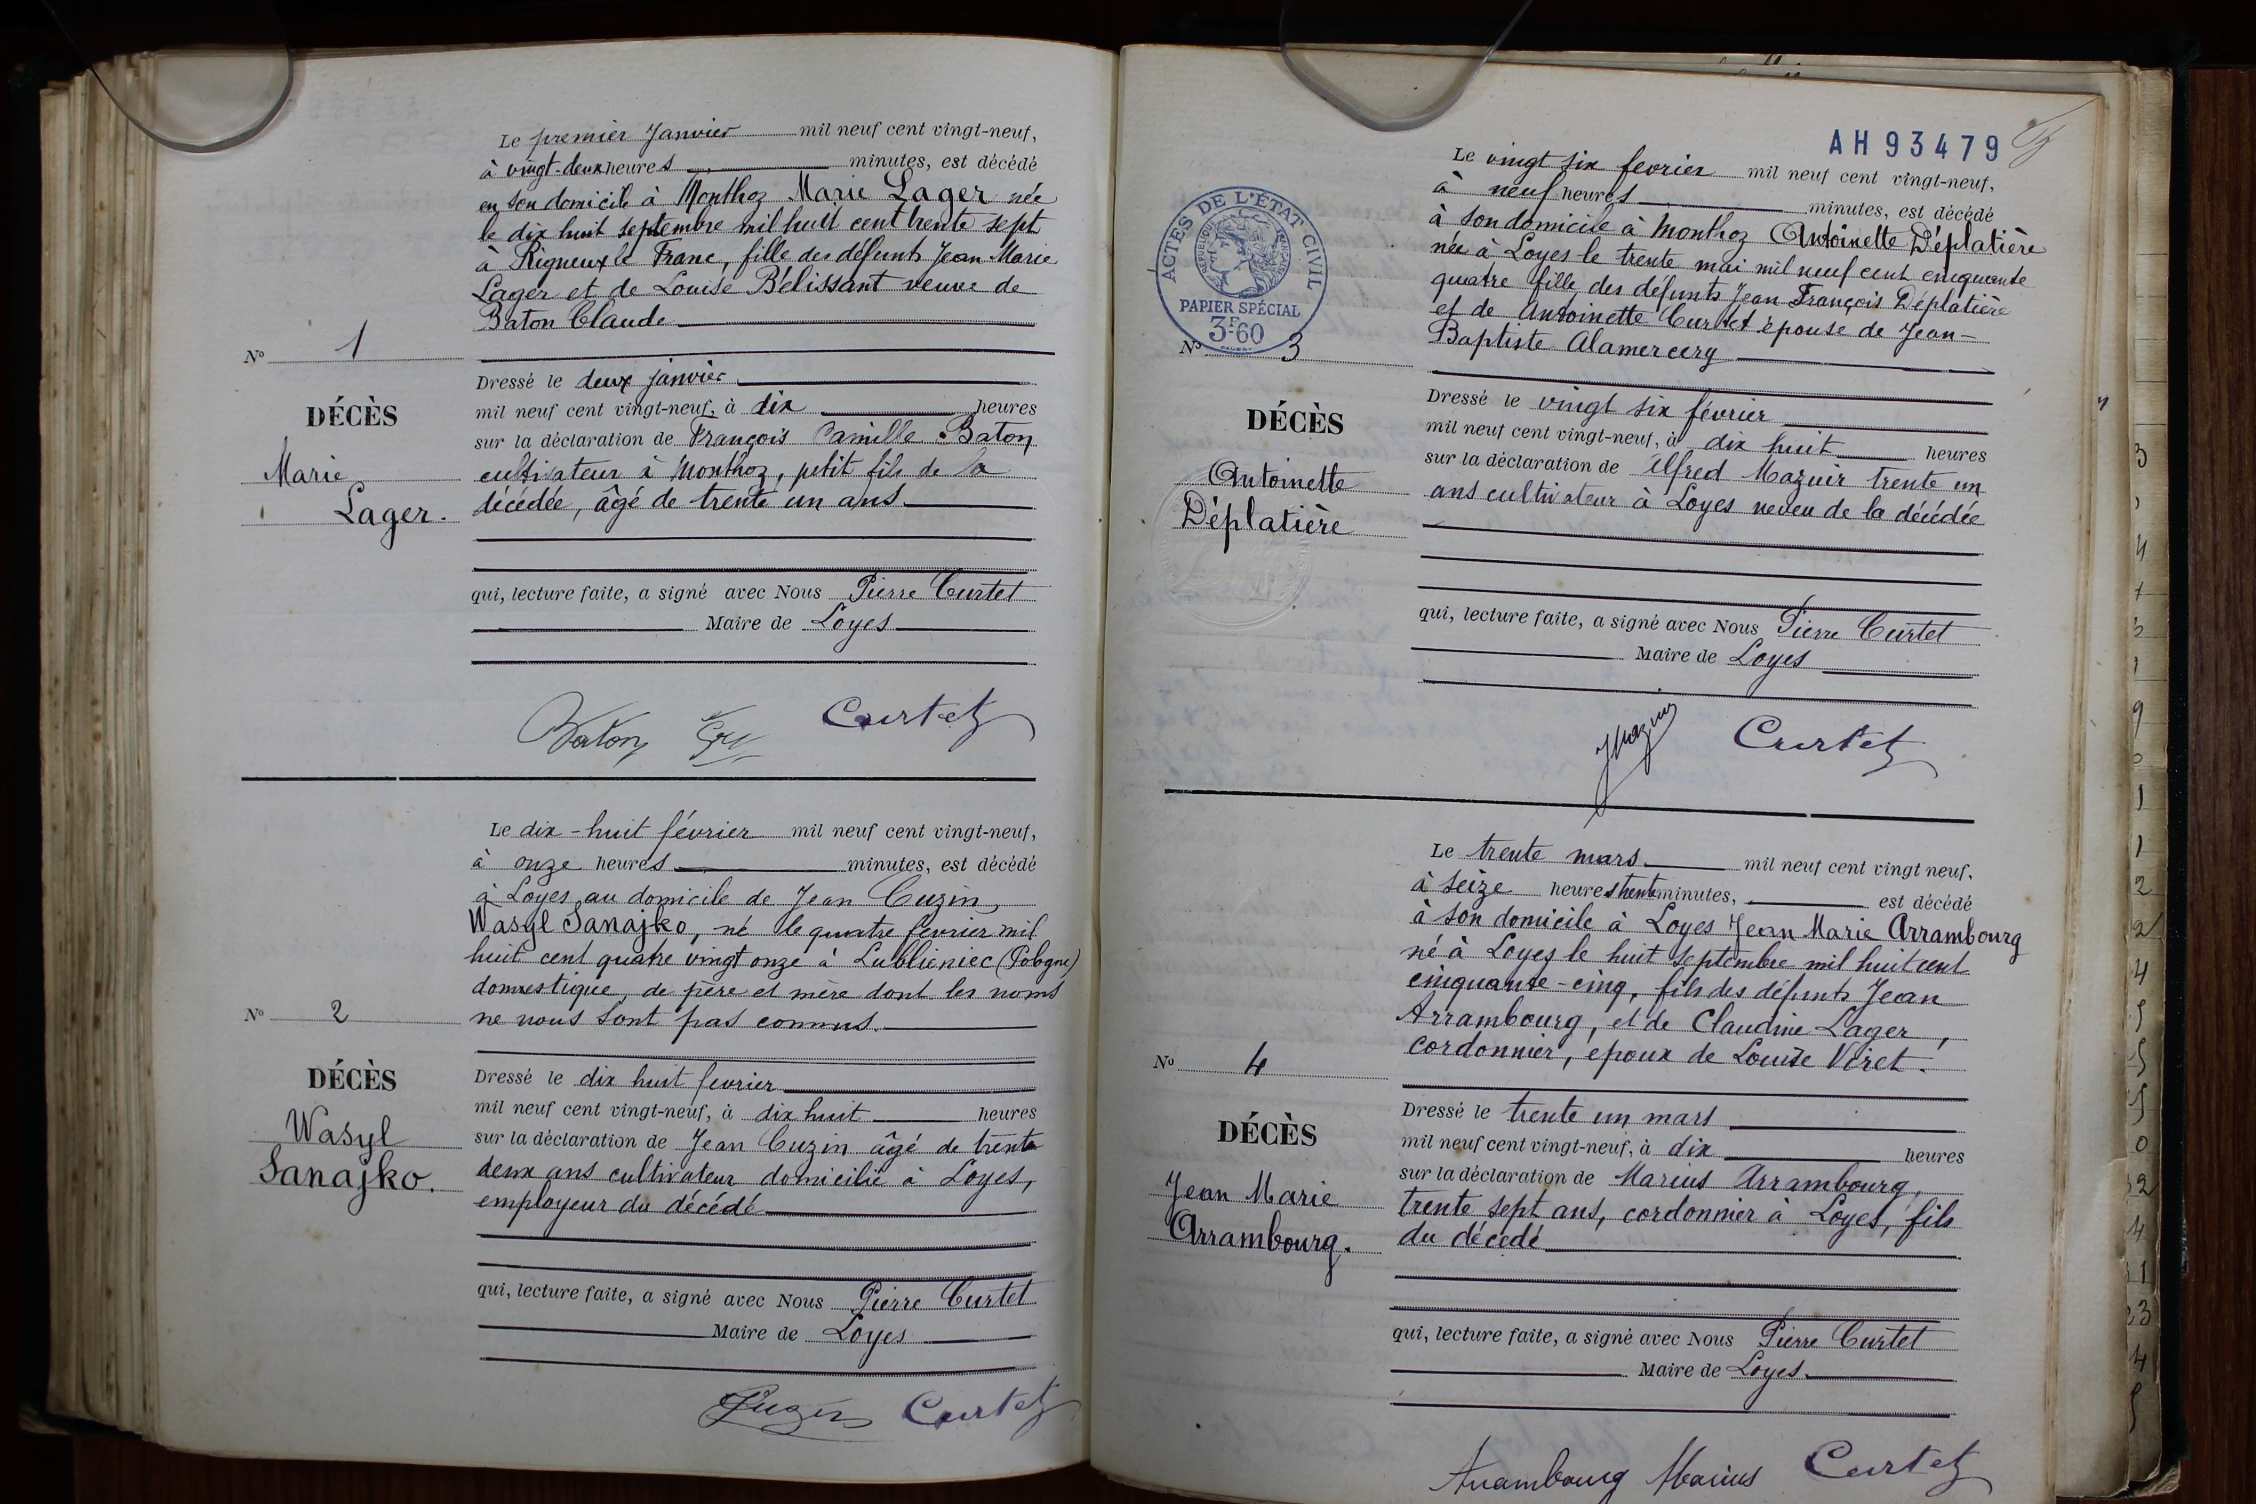 Le premier Janvier mil neuf cent vingt-neuf,
à vingt-deux heures minutes, est décédé
en son domicile à Monthoz Marie Lager née
le dix huit septembre mil huit cent trente sept
à Rigneux le Franc, fille des défunts Jean Marie
Lager et de Louise Bélissant veuve de
Baton Claude
N° 1
DÉCÈS
Marie
Lager.
Dressé le deux janvier
mil neuf cent vingt-neuf, à dix heures
sur la déclaration de François Camille Baton
cultivateur à Monthoz, petit fils de la
décédée, âgé de trente un ans
qui, lecture faite, a signé avec Nous Pierre Curtet
Maire de Loyes
Baton Curtet
Le dix-huit février mil neuf cent vingt-neuf,
à onze heures minutes, est décédé
à Loyes au domicile de Jean Cuzin,
Wasyl Sanajko, né le quatre fevrier mil
huit cent quatre vingt onze à Lublieniec (Pologne)
domestique, de père et mère dont les noms
ne nous sont pas connus.
N° 2
DÉCÈS
Wasyl
Sanajko.
Dressé le dix huit fevrier
mil neuf cent vingt-neuf, à dix huit heures
sur la déclaration de Jean Cuzin âgé de trente
deux ans cultivateur domicilié à Loyes,
employeur du décédé
qui, lecture faite, a signé avec Nous Pierre Curtet
Maire de Loyes
Cuzin Curtet
AH 93479
ACTES DE L'ÉTAT CIVIL
RÉPUBLIQUE FRANÇAISE
PAPIER SPÉCIAL
3F60
Le vingt six fevrier mil neuf cent vingt-neuf,
à neuf heures minutes, est décédé
à son domicile à Monthoz Antoinette Déplatière
née à Loyes le trente mai mil neuf cent cinquante
quatre fille des défunts Jean François Déplatière
et de Antoinette Curtet épouse de Jean-
Baptiste Alamercery
N° 3
DÉCÈS
Antoinette
Déplatière
Dressé le vingt six février
mil neuf cent vingt-neuf, à dix huit heures
sur la déclaration de Alfred Mazuir trente un
ans cultivateur à Loyes neveu de la décédée
qui, lecture faite, a signé avec Nous Pierre Curtet
Maire de Loyes
Curtet
Le trente mars mil neuf cent vingt neuf,
à seize heures trente minutes, est décédé
à son domicile à Loyes Jean Marie Arrambourg
né à Loyes le huit septembre mil huit cent
cinquante-cinq, fils des défunts Jean
Arrambourg, et de Claudine Lager,
cordonnier, époux de Louise Viret.
N° 4
DÉCÈS
Jean Marie
Arrambourg.
Dressé le trente un mars
mil neuf cent vingt-neuf, à dix heures
sur la déclaration de Marius Arrambourg,
trente sept ans, cordonnier à Loyes, fils
du décédé
qui, lecture faite, a signé avec Nous Pierre Curtet
Maire de Loyes
Arrambourg Marius Curtet